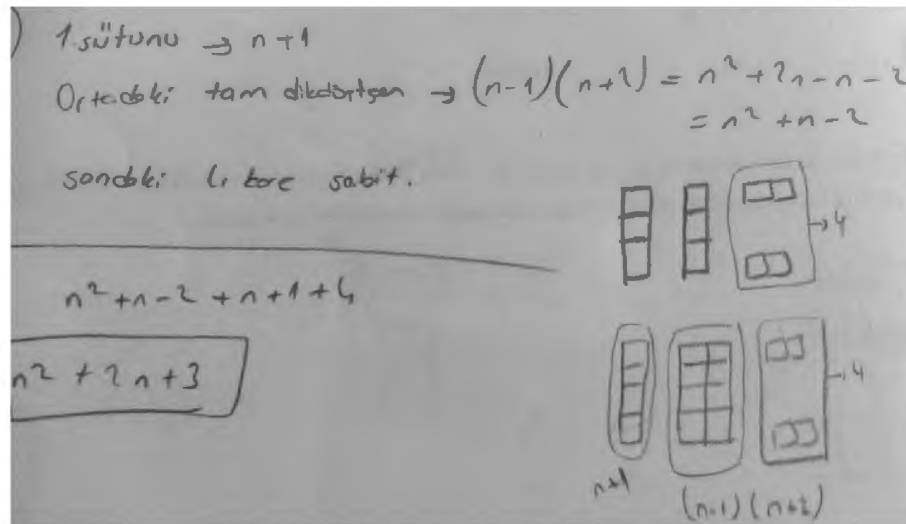 )
1. sütunu → n+1
Ortadaki tam dikdörtgen → (n-1)(n+2) = n² + 2n - n - 2
= n² + n - 2
sondaki 4 kare sabit.
→ 4
n² + n - 2 + n + 1 + 4
n² + 2n + 3
→ 4
n+1
(n-1) (n+2)